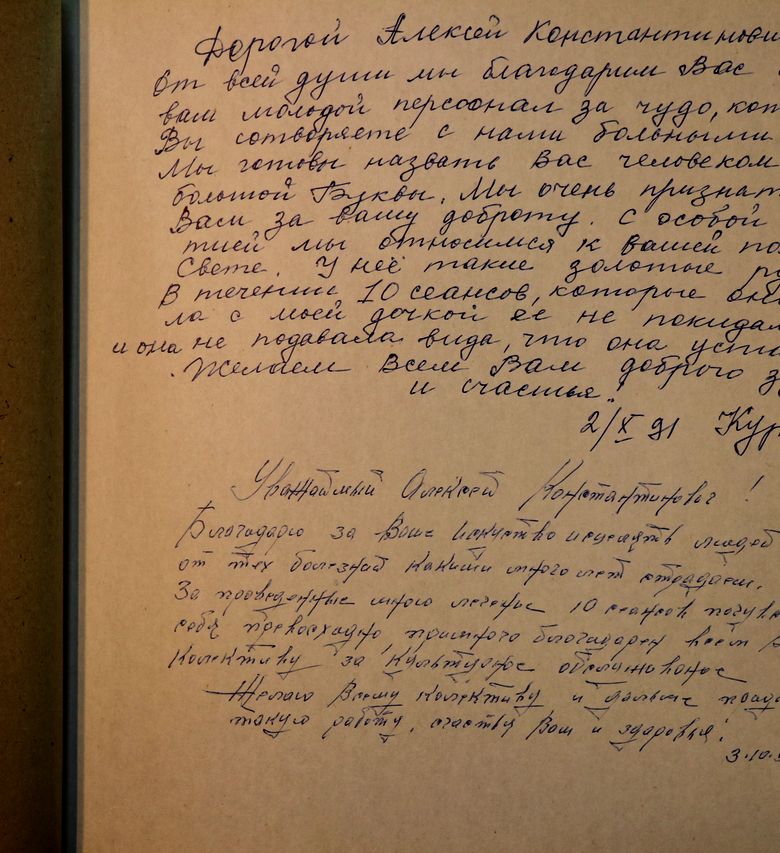 Дорогой Алексей Константинови
От всей души мы благодарим Вас
вам молодой персонал за чудо, кот
Вы сотворяете с нами больными
Мы готовы назвать Вас человеком
большой Буквы. Мы очень признат
Вам за вашу доброту. С особой
тией мы относимся к вашей по
Свете. У неё такие золотые ру
В течении 10 сеансов, которые он
ла с моей дочкой ее не покидал
и она не подавала вида, что она уст
Желаем Всем Вам доброго з
и счастья!
2/X 91 Кур
Уважаемый Алексей Константинович!
Благодарю за Ваше искуство исцелять людей
от тех болезней какими много лет страдаем.
За проведенные мною лечение 10 сеансов почувс
себя превосходно, примного благодарен всем
Колективу за культурное обслуживание
Желаю Всему колективу и дальше продо
такую работу, счастья Вам и здоровья!
3.10.